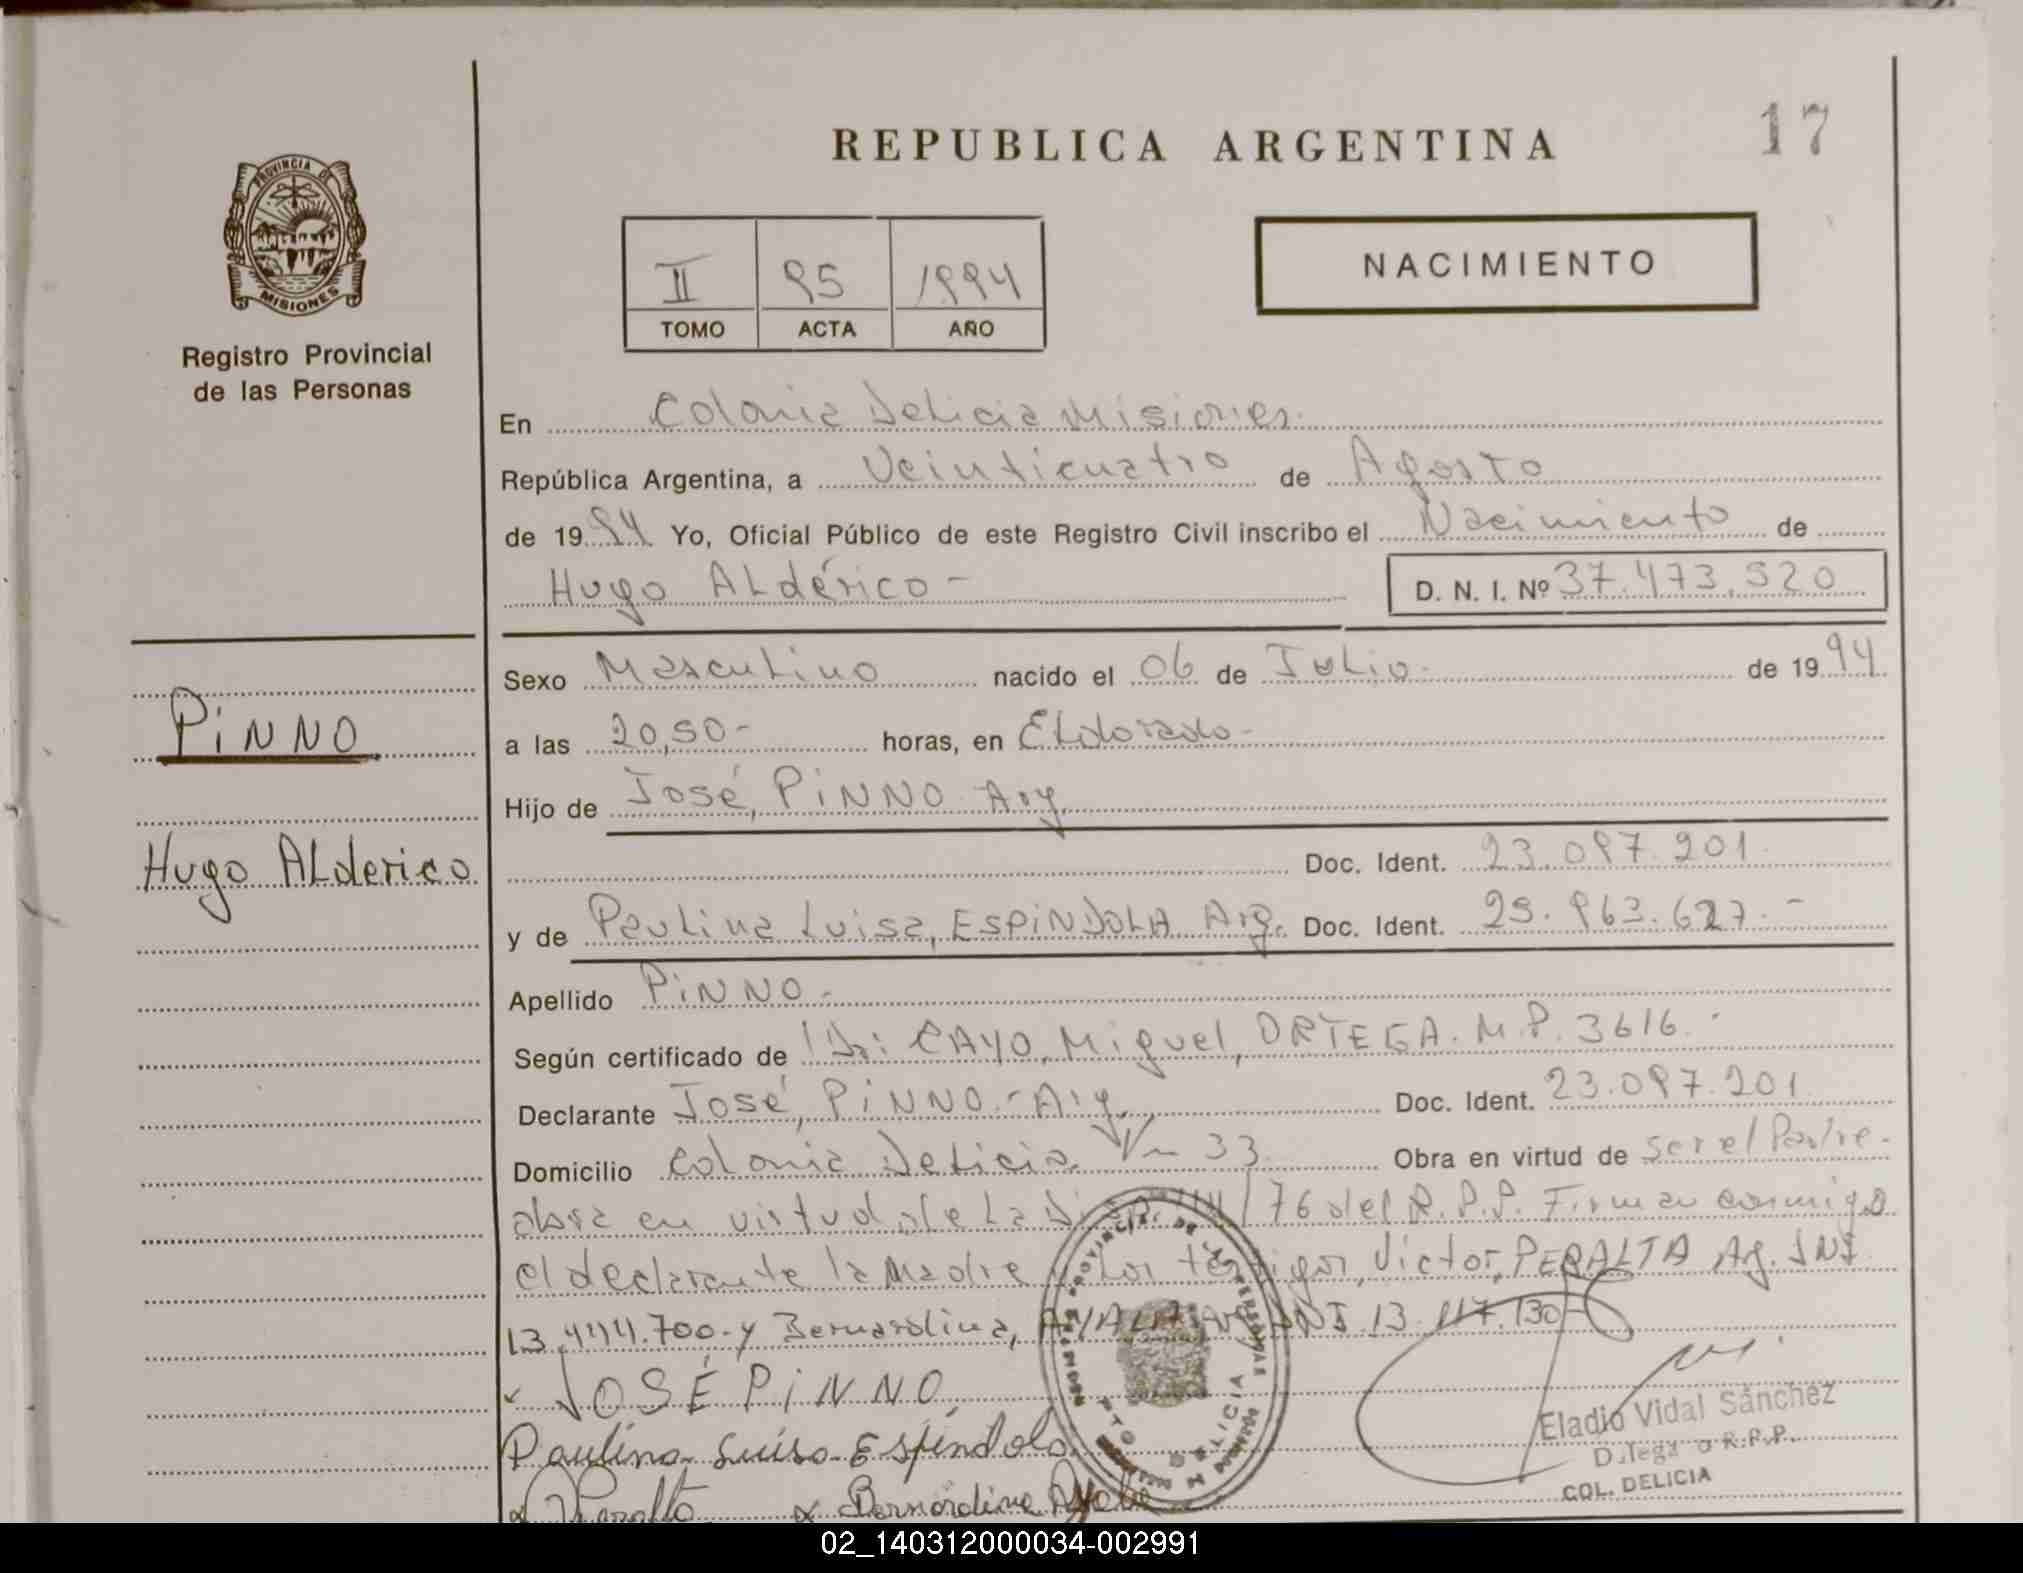 REPUBLICA ARGENTINA
17
PROVINCIA DE
MISIONES
Registro Provincial
de las Personas
II 95 1994
TOMO ACTA AÑO
NACIMIENTO
En Colonia Delicia Misiones.
República Argentina, a Veinticuatro de Agosto
de 1994 Yo, Oficial Público de este Registro Civil inscribo el Nacimiento de
Hugo ALdérico - D. N. I. Nº 37.473.520
Sexo Masculino nacido el 06 de Julio. de 1994
PiNNO
a las 20,50- horas, en ELdorado-
Hijo de José, PiNNO Arg.
Hugo ALderico
Doc. Ident. 23.097.201
y de Paulina Luisa, ESPiNDOLA Arg. Doc. Ident. 25.963.627.-
Apellido PiNNO-
Según certificado de Dr: CAYO, Miguel, ORTEGA. M.P. 3616.-
Declarante José, PiNNO.- Arg. Doc. Ident. 23.097.201
Domicilio Colonia Delicia. 33 Obra en virtud de ser el Padre.-
obra en virtud de La /76 del R.P.P. Firman conmigo
el declarante la Madre Los Victor, PERALTA Ag. DNI
13.444.700-y Bernardina, AYALA DNI 13.117.130-
JOSÉ PiNNO
Paulina Luisa Espíndola
Peralta Bernardina Ayala
Eladio Vidal Sánchez
R.P.P.
COL. DELICIA
02_140312000034-002991